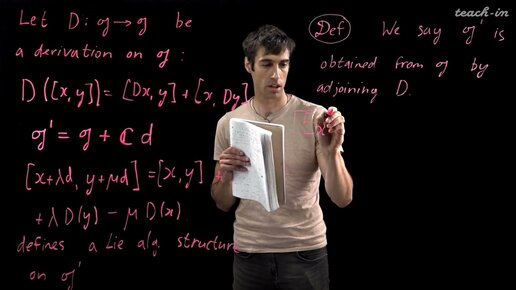 Let D: 𝔤→𝔤 be
a derivation on 𝔤 :
D([x, y]) = [Dx, y] + [x, Dy]
𝔤' = 𝔤 + ℂ d
[x+λd, y+μd] = [x, y] +
+ λ D(y) − μ D(x)
defines a Lie alg. structure
on 𝔤'
Def We say 𝔤' is
obtained from 𝔤 by
adjoining D.
teach-in